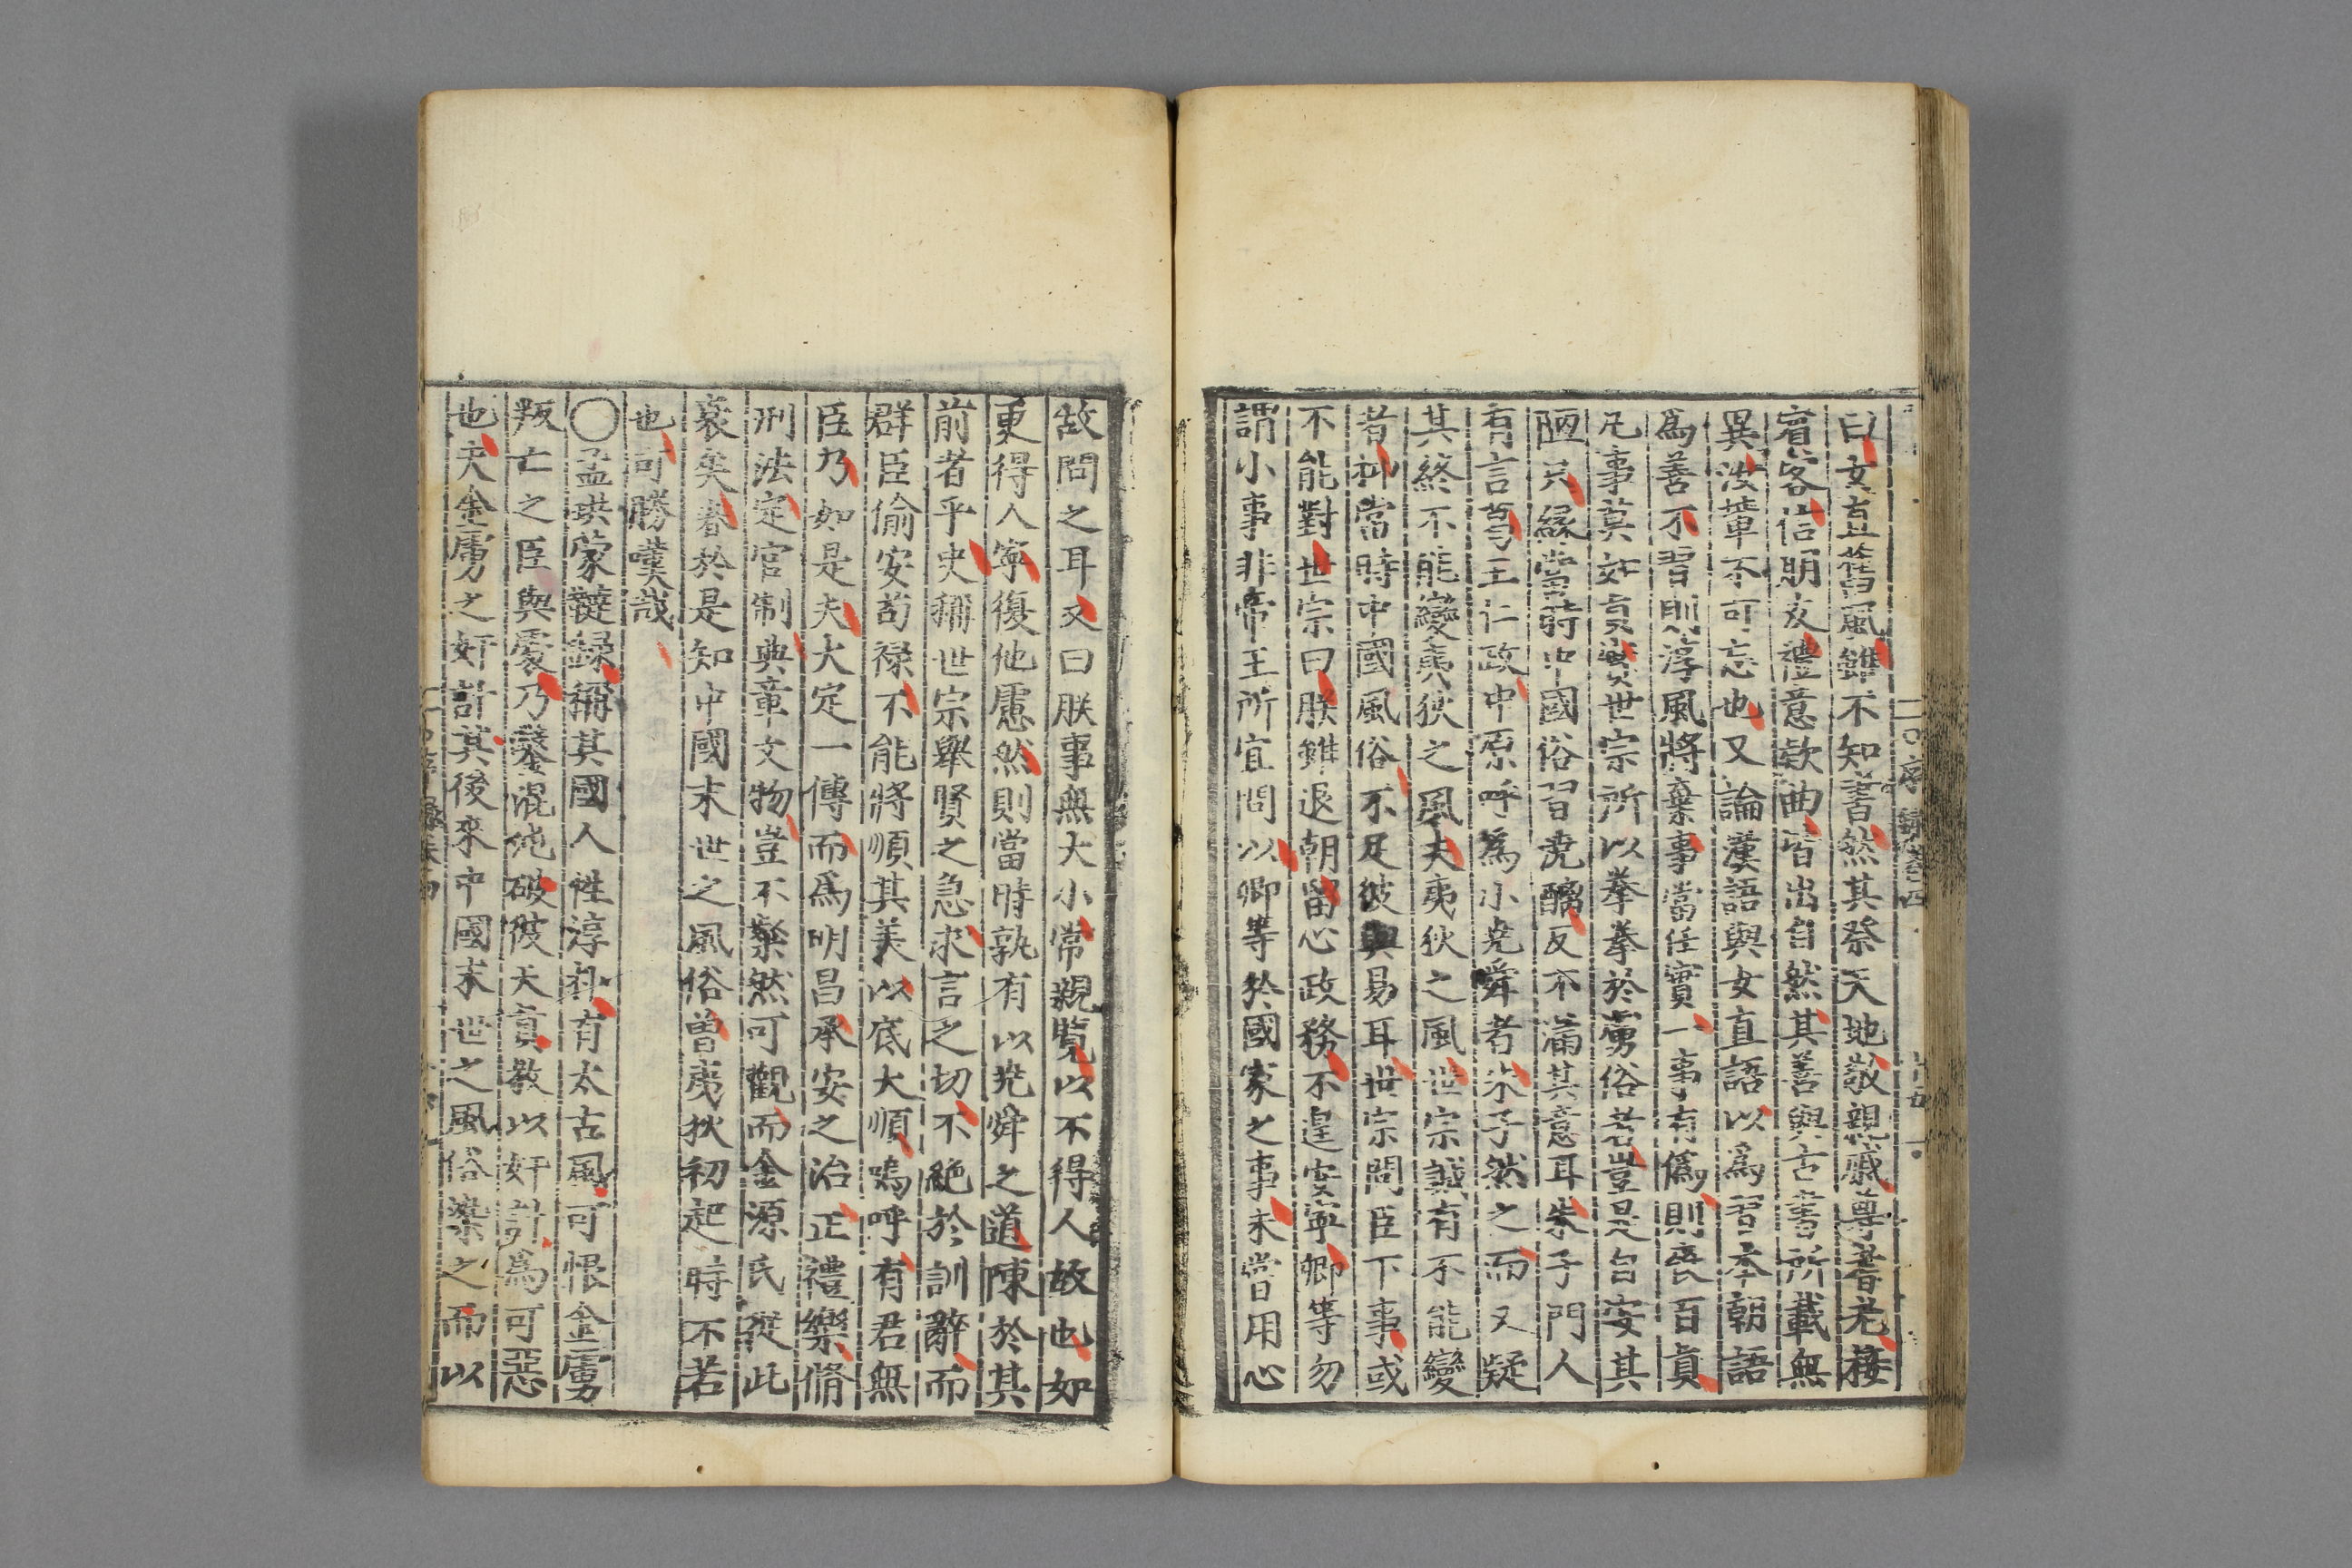 曰女直舊風雖不知書然其祭天地敬親戚尊耆老接
賓客信朋友禮意欵曲皆出自然其善與古書所載無
異汝輩不可忘也又論漢語與女直語以爲習本朝語
爲善不習則淳風將棄事當任實一事有僞則喪百眞
凡事莫如眞實世宗所以拳拳於虜俗者豈是自安其
陋只緣當時中國俗習堯醨反不滿其意耳朱子門人
有言葛王仁政中原呼爲小堯舜者朱子然之而又疑
其終不能變夷狄之風夫夷狄之風世宗誠有不能變
者抑當時中國風俗不足彼與易耳世宗問臣下事或
不能對世宗曰朕雖退朝留心政務不遑安寧卿等勿
謂小事非帝王所宜問以卿等於國家之事未嘗用心
故問之耳又曰朕事無大小常親覽以不得人故也如
更得人寧復他慮然則當時孰有以堯舜之道陳於其
前者乎史稱世宗舉賢之急求言之切不絶於訓辭而
群臣偷安苟祿不能將順其美以底大順嗚呼有君無
臣乃如是夫大定一傳而爲明昌承安之治正禮樂脩
刑法定官制典章文物豈不粲然可觀而金源氏從此
衰矣春於是知中國末世之風俗曾夷狄初起時不若
也可勝嘆哉
〇孟珙蒙韃録稱其國人性淳朴有太古風可恨金虜
叛亡之臣與處乃鑿混沌破彼天眞教以奸計爲可惡
也夫金虜之奸計其後來中國末世之風俗漸之而以